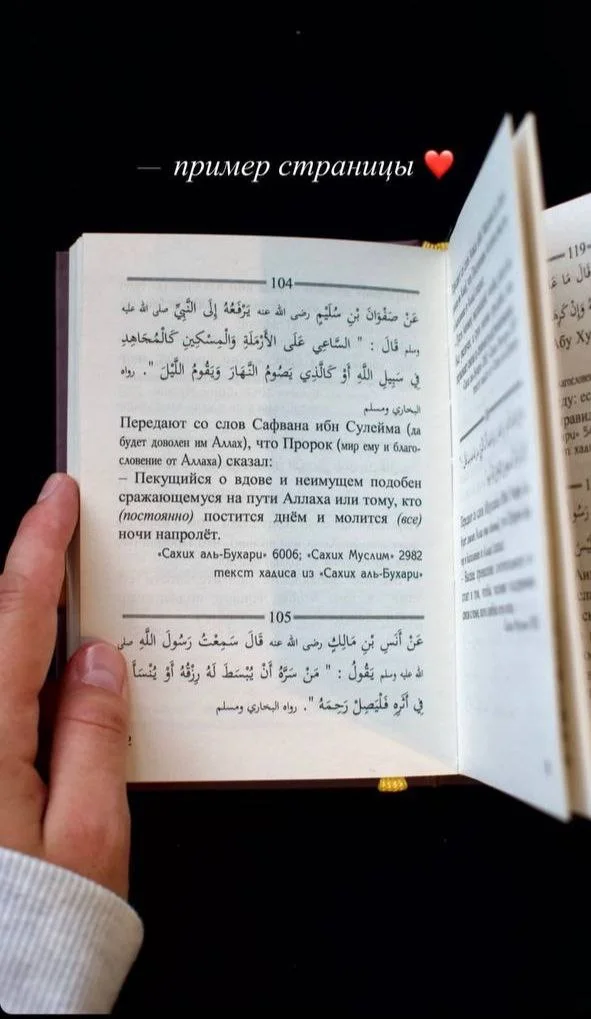 — пример страницы ❤️
104
عَنْ صَفْوَانَ بْنِ سُلَيْمٍ رضى الله عنه يَرْفَعُهُ إِلَى النَّبِيِّ صلى الله عليه
وسلم قَالَ : " السَّاعِي عَلَى الأَرْمَلَةِ وَالْمِسْكِينِ كَالْمُجَاهِدِ
فِي سَبِيلِ اللَّهِ أَوْ كَالَّذِي يَصُومُ النَّهَارَ وَيَقُومُ اللَّيْلَ ". رواه
البخاري ومسلم
Передают со слов Сафвана ибн Сулейма (да
будет доволен им Аллах), что Пророк (мир ему и благо-
словение от Аллаха) сказал:
– Пекущийся о вдове и неимущем подобен
сражающемуся на пути Аллаха или тому, кто
(постоянно) постится днём и молится (все)
ночи напролёт.
«Сахих аль-Бухари» 6006; «Сахих Муслим» 2982
текст хадиса из «Сахих аль-Бухари»
105
عَنْ أَنَسِ بْنِ مَالِكٍ رضى الله عنه قَالَ سَمِعْتُ رَسُولَ اللَّهِ صلى
الله عليه وسلم يَقُولُ : " مَنْ سَرَّهُ أَنْ يُبْسَطَ لَهُ رِزْقُهُ أَوْ يُنْسَأَ
فِي أَثَرِهِ فَلْيَصِلْ رَحِمَهُ ". رواه البخاري ومسلم
119
قَالَ مَا